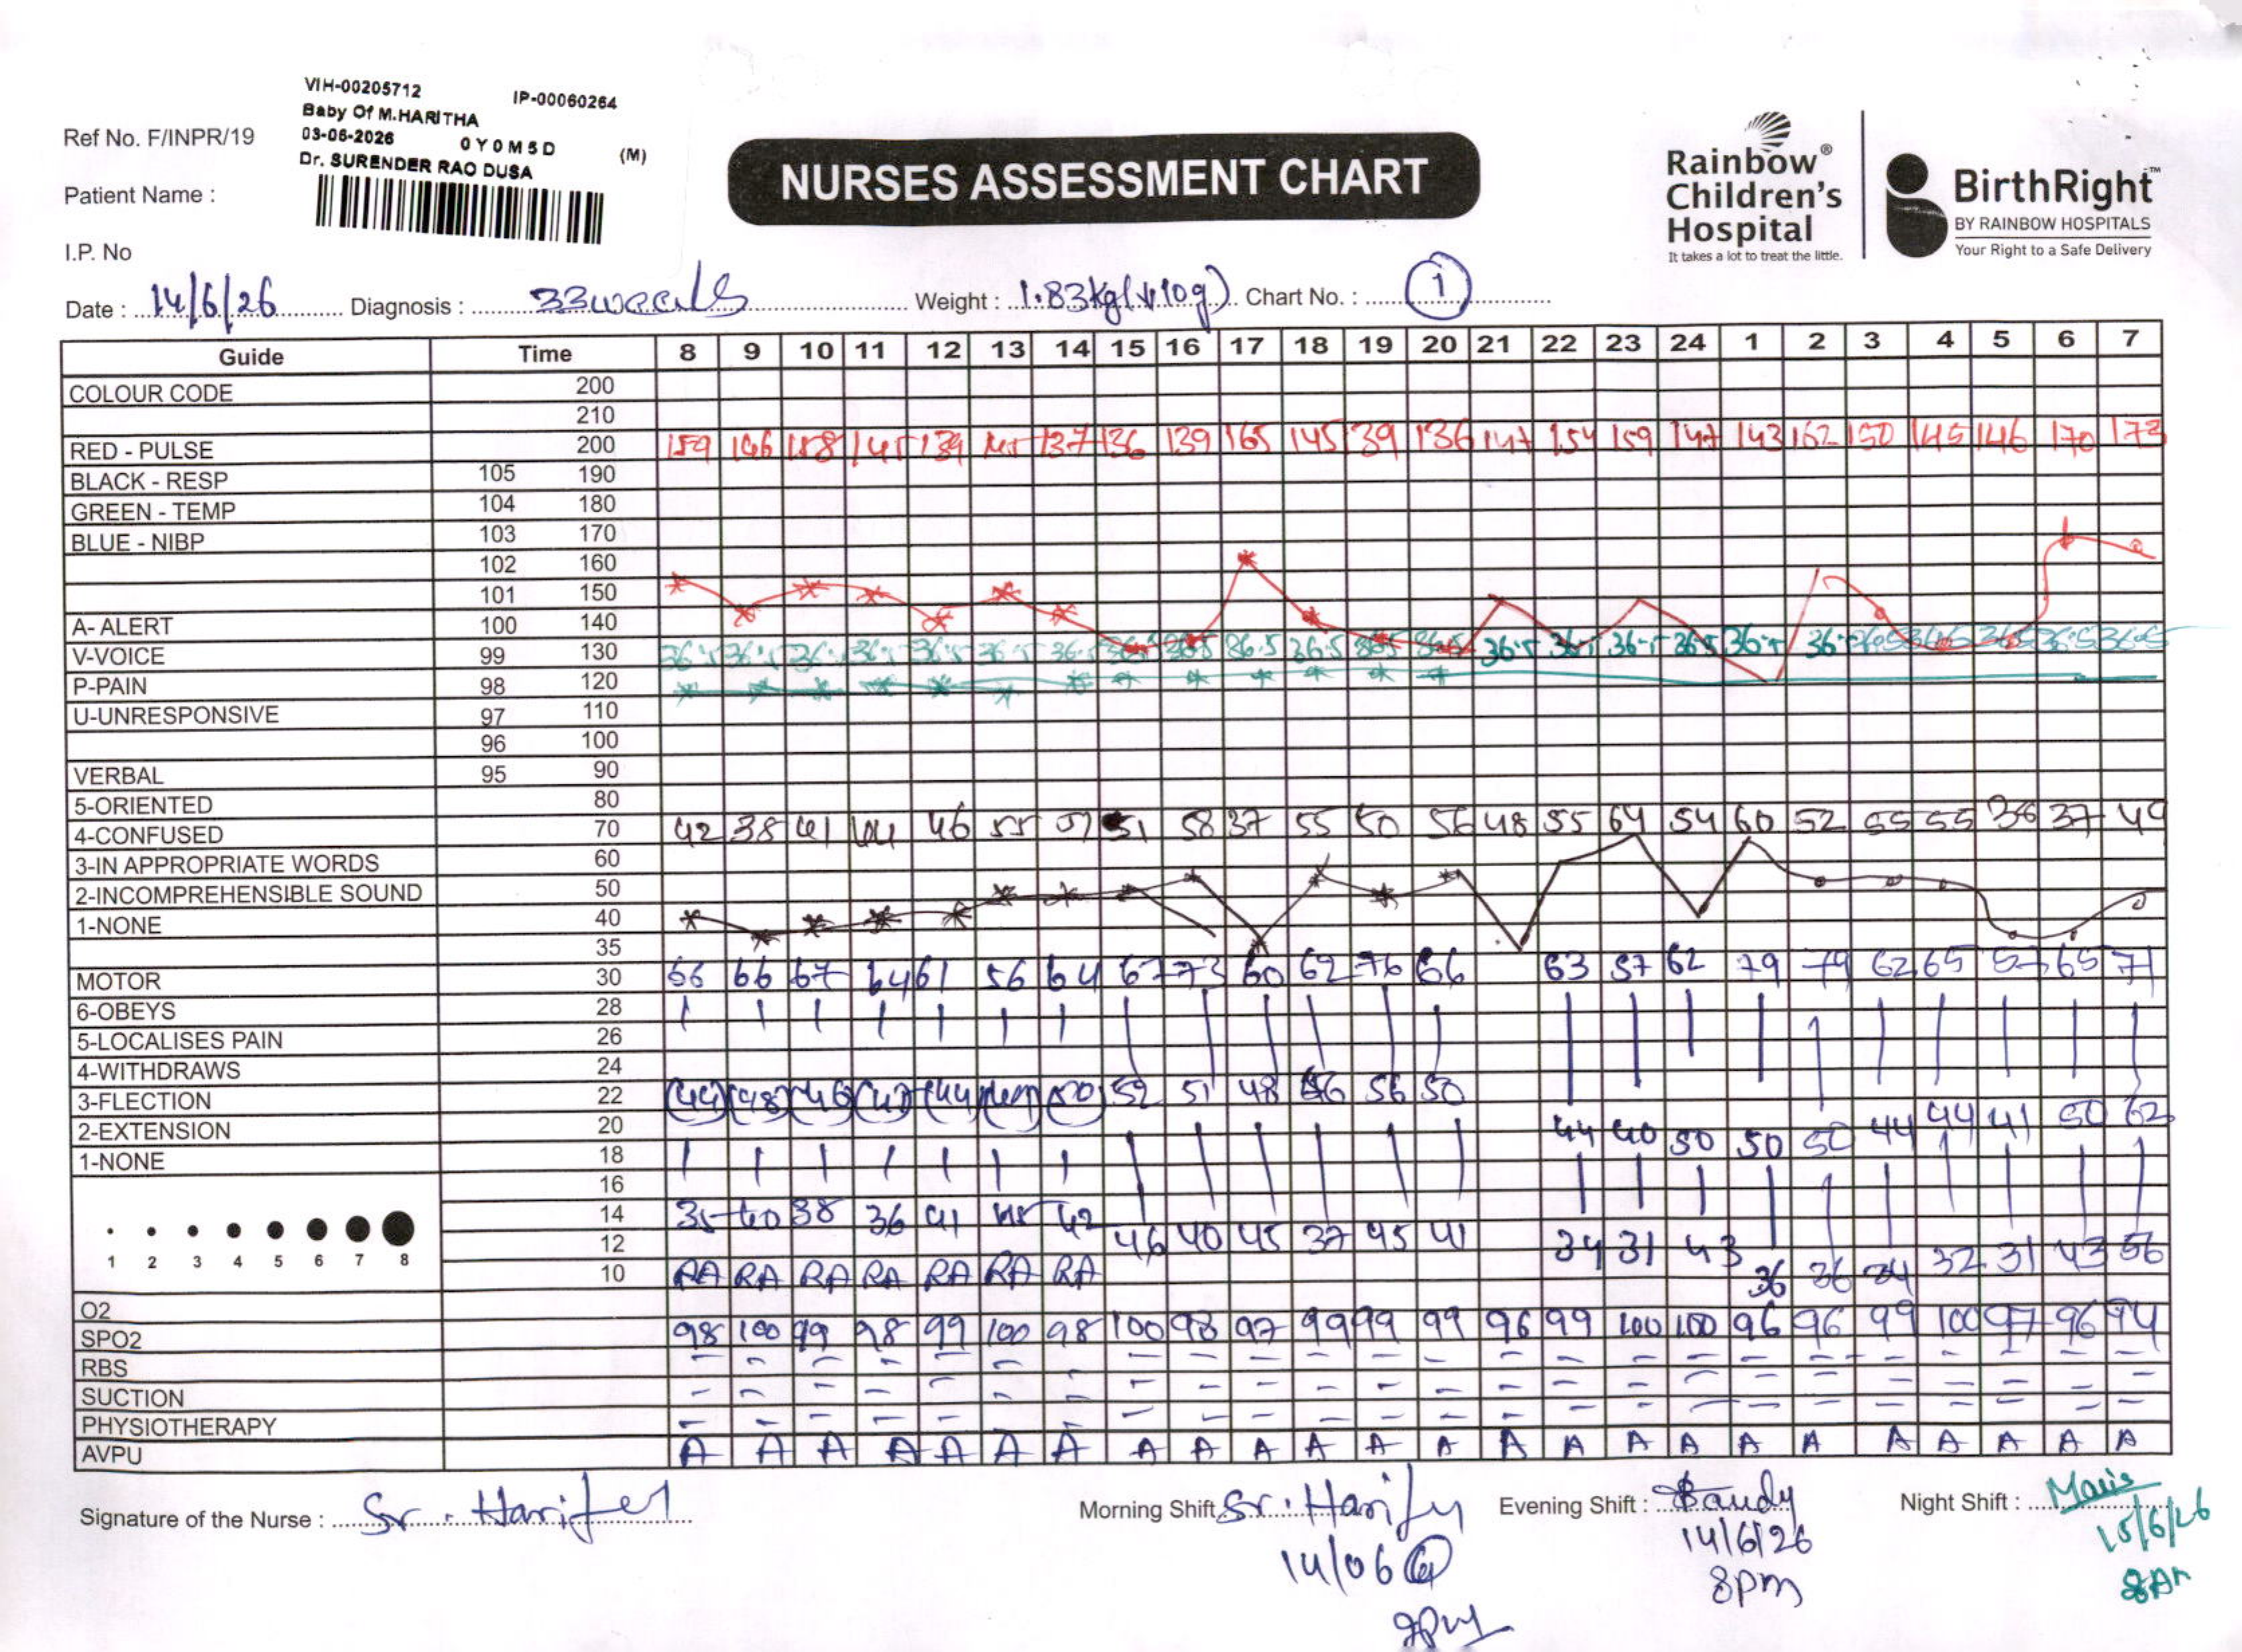 VIH-00205712 IP-00060264
Baby Of M.HARITHA
03-06-2026 0Y0M5D (M)
Dr. SURENDER RAO DUSA
Ref No. F/INPR/19
Patient Name :
I.P. No
NURSES ASSESSMENT CHART
Rainbow®
Children's
Hospital
It takes a lot to treat the little.
BirthRight™
BY RAINBOW HOSPITALS
Your Right to a Safe Delivery
Date : 14/6/26 Diagnosis : 33weeks Weight : 1.83kg(↓10g) Chart No. : 1
Guide Time 8 9 10 11 12 13 14 15 16 17 18 19 20 21 22 23 24 1 2 3 4 5 6 7
COLOUR CODE 200
210
RED - PULSE 200 159 146 158 145 139 145 137 136 139 165 145 139 136 147 154 159 147 143 162 150 145 146 170 173
BLACK - RESP 105 190
GREEN - TEMP 104 180
BLUE - NIBP 103 170
102 160
101 150
A- ALERT 100 140
V-VOICE 99 130 36.5 36.5 36.5 36.5 36.5 36.5 36.5 36.5 36.5 36.5 36.5 36.5 36.5 36.5 36.5 36.5 36.5 36.5 36.5 36.5 36.5 36.5 36.5
P-PAIN 98 120
U-UNRESPONSIVE 97 110
96 100
VERBAL 95 90
5-ORIENTED 80
4-CONFUSED 70 42 38 41 44 46 55 51 51 58 37 55 50 56 48 55 64 54 60 52 55 55 36 37 49
3-IN APPROPRIATE WORDS 60
2-INCOMPREHENSIBLE SOUND 50
1-NONE 40
35
MOTOR 30 66 66 67 64 61 56 64 67 73 60 62 76 66 63 57 62 79 79 62 65 57 65 71
6-OBEYS 28
5-LOCALISES PAIN 26
4-WITHDRAWS 24
3-FLECTION 22 (44) (48) (46) (43) (44) (50) 52 51 48 56 56 50
2-EXTENSION 20 44 40 50 50 50 44 44 41 50 62
1-NONE 18
16
14 35 40 38 36 41 45 42
12 46 40 45 37 45 41 34 31 43 36 36 34 32 31 43 56
10 RA RA RA RA RA RA RA
1 2 3 4 5 6 7 8
O2
SPO2 98 100 99 98 99 100 98 100 98 97 99 99 99 96 99 100 100 96 96 99 100 97 96 94
RBS - - - - - - - - - - - - - - - - - - - - - - - -
SUCTION - - - - - - - - - - - - - - - - - - - - - - - -
PHYSIOTHERAPY - - - - - - - - - - - - - - - - - - - - - - - -
AVPU A A A A A A A A A A A A A A A A A A A A A A A A
Signature of the Nurse : Sr. Morning Shift Sr. Evening Shift : Night Shift :
14/06 @ 14/6/26 15/6/26
2pm 8pm 8Am